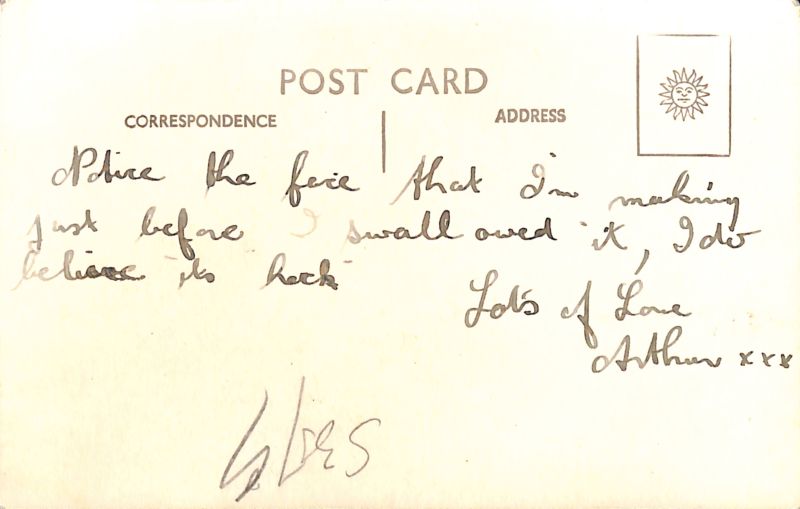 POST CARD
CORRESPONDENCE
ADDRESS
Notice the face that I'm making
just before I swallowed it, I do
believe its hock
Lots of Love
Arthur xxx